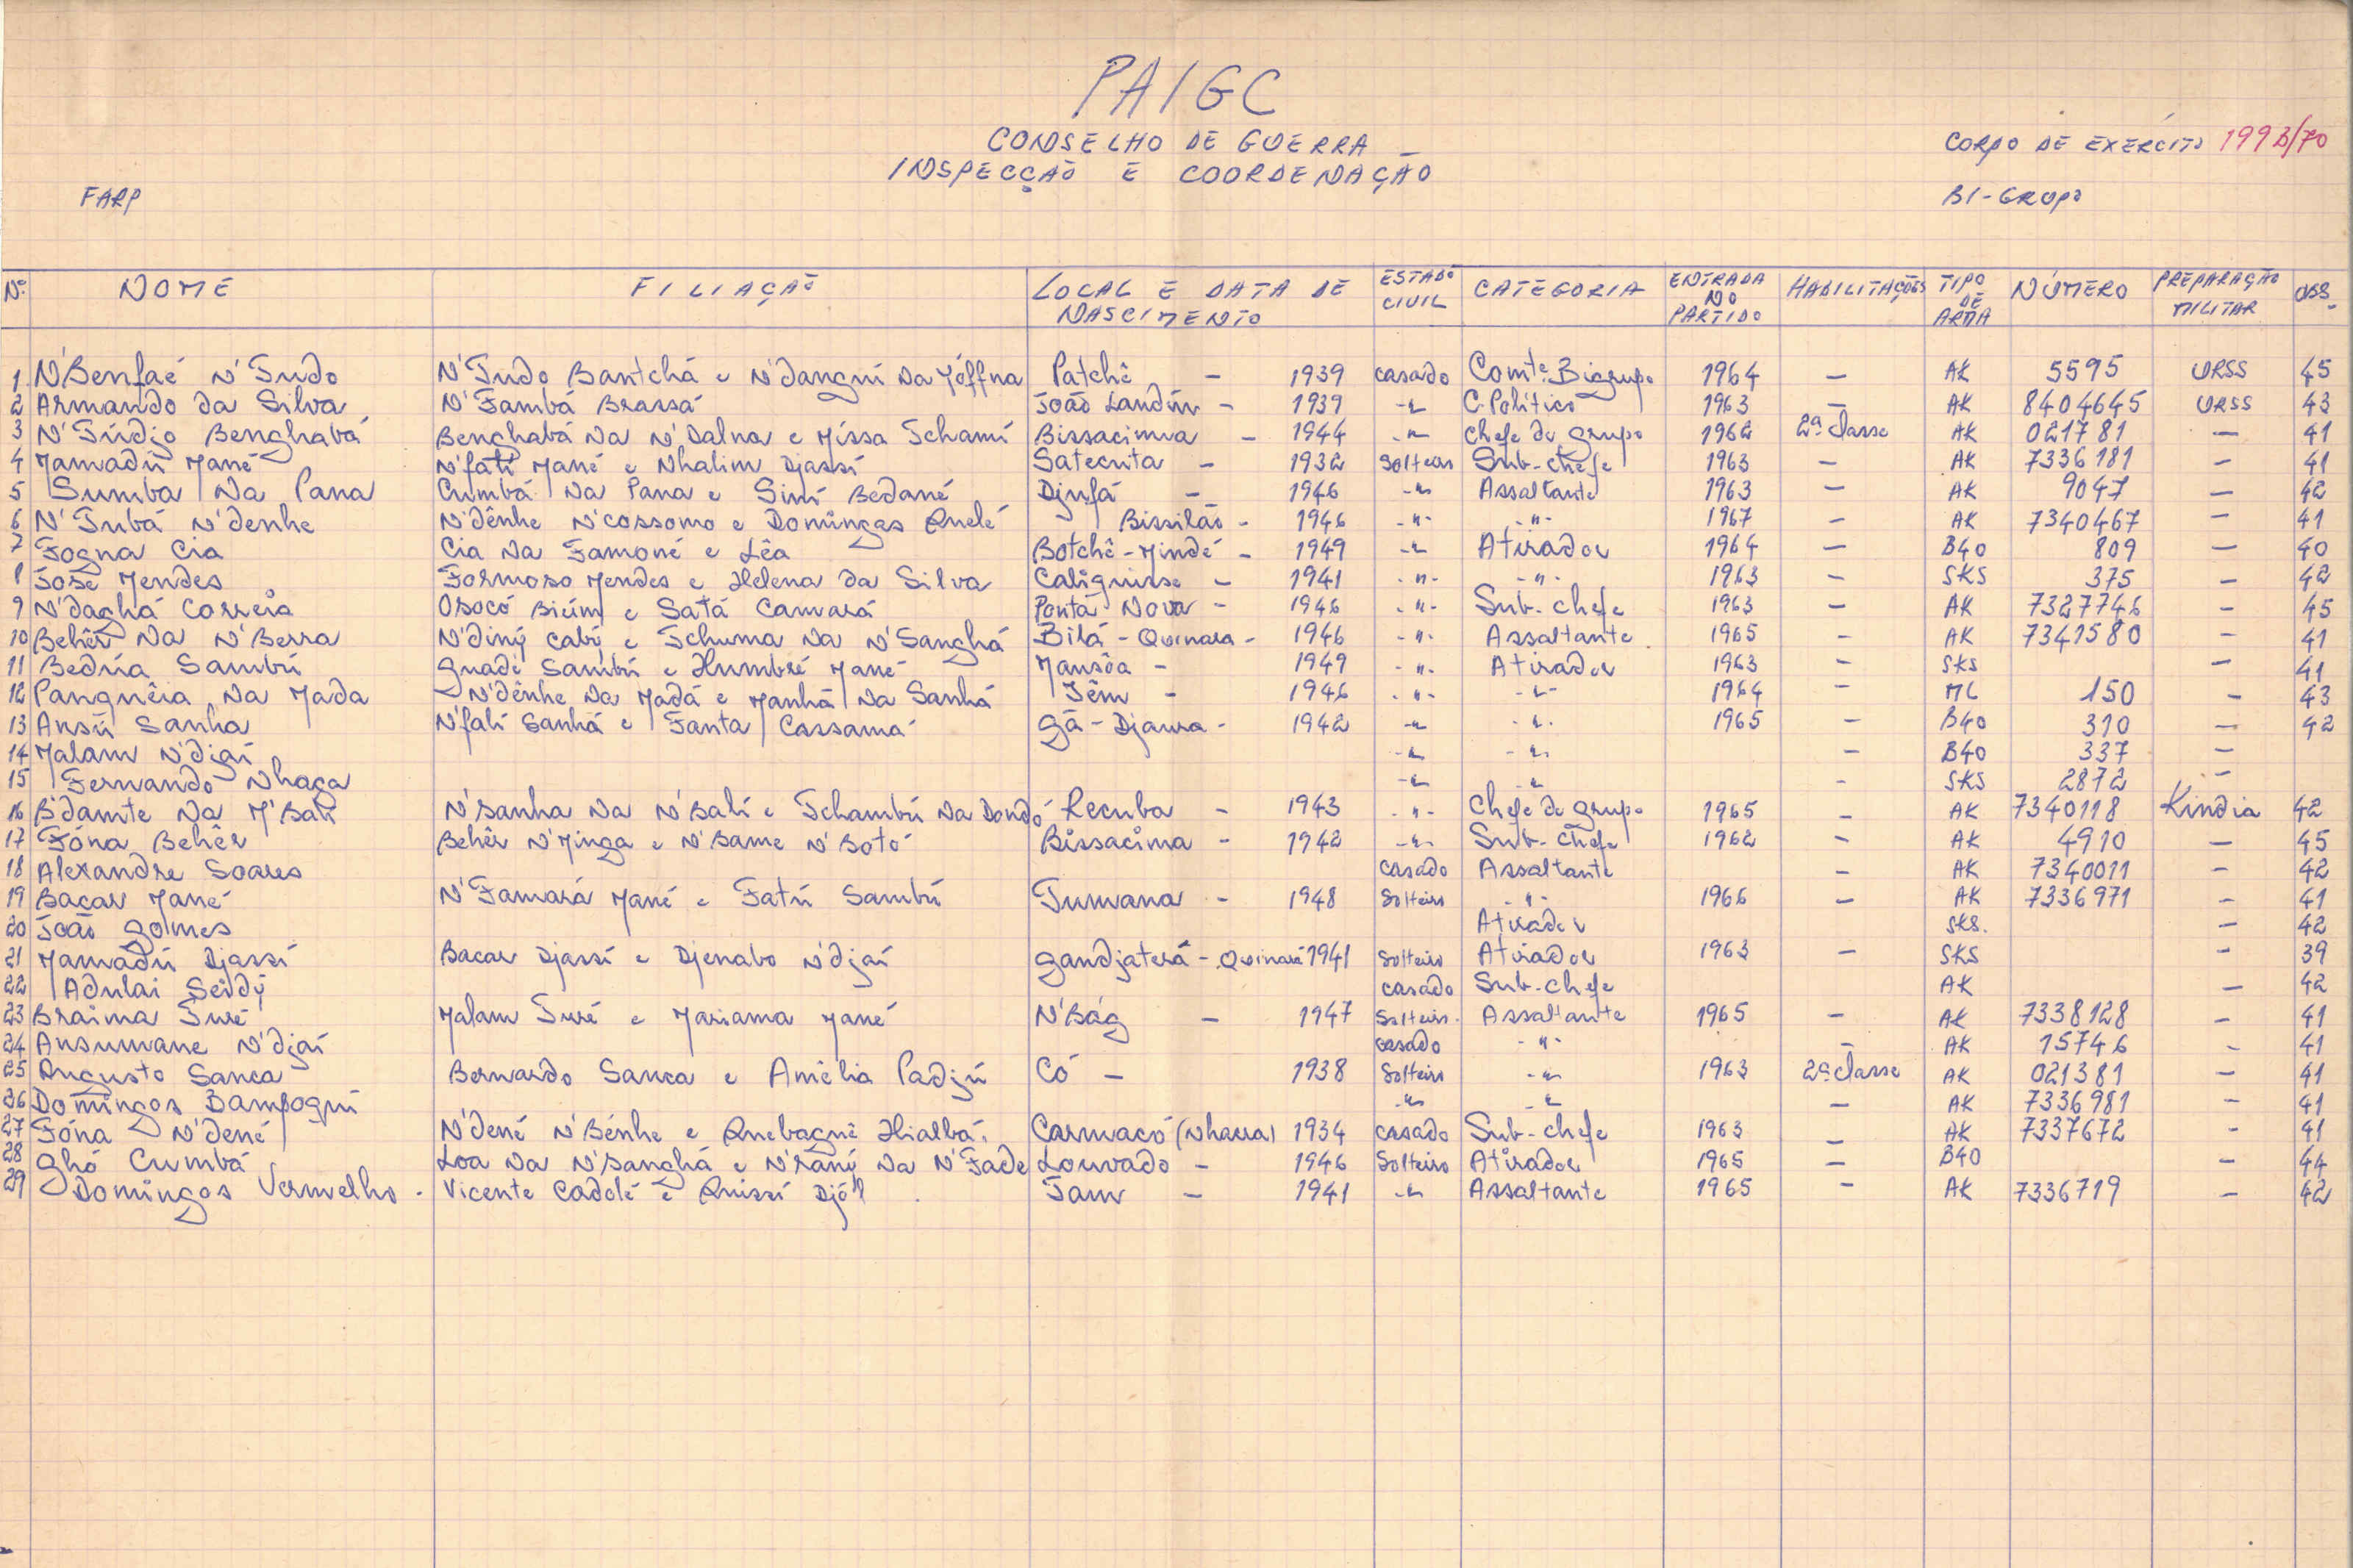 PAIGC
CONSELHO DE GUERRA
INSPECÇÃO E COORDENAÇÃO
CORPO DE EXÉRCITO 199B/70
FARP
BI-GRUPO
Nº NOME FILIAÇÃO LOCAL E DATA DE NASCIMENTO ESTADO CIVIL CATEGORIA ENTRADA NO PARTIDO HABILITAÇÕES TIPO DE ARMA NÚMERO PREPARAÇÃO MILITAR OBS.
1 N'Benfaé N'Tudo N'Tudo Bantchá e N'dangní Na Móffna Patchê - 1939 casado Comte. Bigrupo 1964 — AK 5595 URSS 45
2 Armando da Silva N'Fambá Brassá João Landim - 1939 -"- C. Político 1963 — AK 8404645 URSS 43
3 N'Túdjo Benghabá Benghabá Na N'Dalna e Míssa Tchamí Bissacimna - 1944 -"- Chefe de grupo 1962 2ª classe AK 021781 — 41
4 Mamadú Mané N'fatí Mané e Nhalim Djassí Satecuta - 1932 Solteiro Sub-chefe 1963 — AK 7336181 — 41
5 Sumba Na Pana Cumbá Na Pana e Siní Bedané Djufá - 1946 -"- Assaltante 1963 — AK 9047 — 42
6 N'Tubá N'denhe N'dênhe N'cossomo e Domingas Quelé Bissilão - 1946 -"- -"- 1967 — AK 7340467 — 41
7 Fogna Cia Cia Na Famoné e Lêa Botchê-Mindé - 1949 -"- Atirador 1964 — B40 809 — 40
8 José Mendes Formoso Mendes e Helena da Silva Caliquisse - 1941 -"- -"- 1963 — SKS 375 — 42
9 N'daghá Correia Osocó Bicím e Satá Camará Ponta Nova - 1946 -"- Sub-chefe 1963 — AK 7327746 — 45
10 Behêr Na N'Berra N'diný cabý e Tchuma Na N'Sanghá Bilá-Quinara - 1946 -"- Assaltante 1965 — AK 7341580 — 41
11 Bedúa Sambú Guadé Sambú e Humbré Mané Mansôa - 1949 -"- Atirador 1963 — SKS — 41
12 Panguêia Na Mada N'dênhe Na Madá e Manhá Na Sanhá Têm - 1946 -"- -"- 1964 — ML 150 — 43
13 Ansú Sanha N'falí Sanhá e Fanta Cassamá Gã-Djaura - 1942 -"- -"- 1965 — B40 310 — 42
14 Malam N'djaí -"- -"- — B40 337 —
15 Fernando Nhaga -"- -"- — SKS 2872 —
16 B'damte Na M'Bali N'sanha Na N'Balí e Tchambú Na Dondó Recuba - 1943 -"- Chefe de grupo 1965 — AK 7340118 Kindia 42
17 Fóna Behêr Behêr N'Minga e N'Bame N'Botó Bissacima - 1942 -"- Sub-chefe 1962 — AK 4910 — 45
18 Alexandre Soares casado Assaltante — AK 7340011 — 42
19 Bacar Mané N'Famará Mané e Fatú Sambú Tumana - 1948 Solteiro -"- 1966 — AK 7336971 — 41
20 João Golmes Atirador SKS. — 42
21 Mamadú Djassí Bacar Djassí e Djenabo N'djaí Gandjaterá - Quinará 1941 Solteiro Atirador 1963 — SKS — 39
22 Adulai Seidý casado Sub-chefe AK — 42
23 Braima Turé Malam Turé e Mariama Mané N'Bág - 1947 Solteiro. Assaltante 1965 — AK 7338128 — 41
24 Ansumane N'djaí casado -"- — AK 15746 — 41
25 Augusto Sanca Bernardo Sanca e Amélia Padjú Có - 1938 Solteiro -"- 1963 2ª classe AK 021381 — 41
26 Domingos Bampoquí -"- -"- — AK 7336981 — 41
27 Fóna N'dené N'dené N'Bénhe e Quebagné Hialbá. Carmacó (Nhacra) 1934 casado Sub-chefe 1963 — AK 7337672 — 41
28 Ghó Cumbá Loa Na N'sanghá e N'raný Na N'Fade Louvado - 1946 Solteiro Atirador 1965 — B40 — 44
29 Domingos Vermelho. Vicente Cadolé e Quissí Djó Tam - 1941 -"- Assaltante 1965 — AK 7336719 — 42